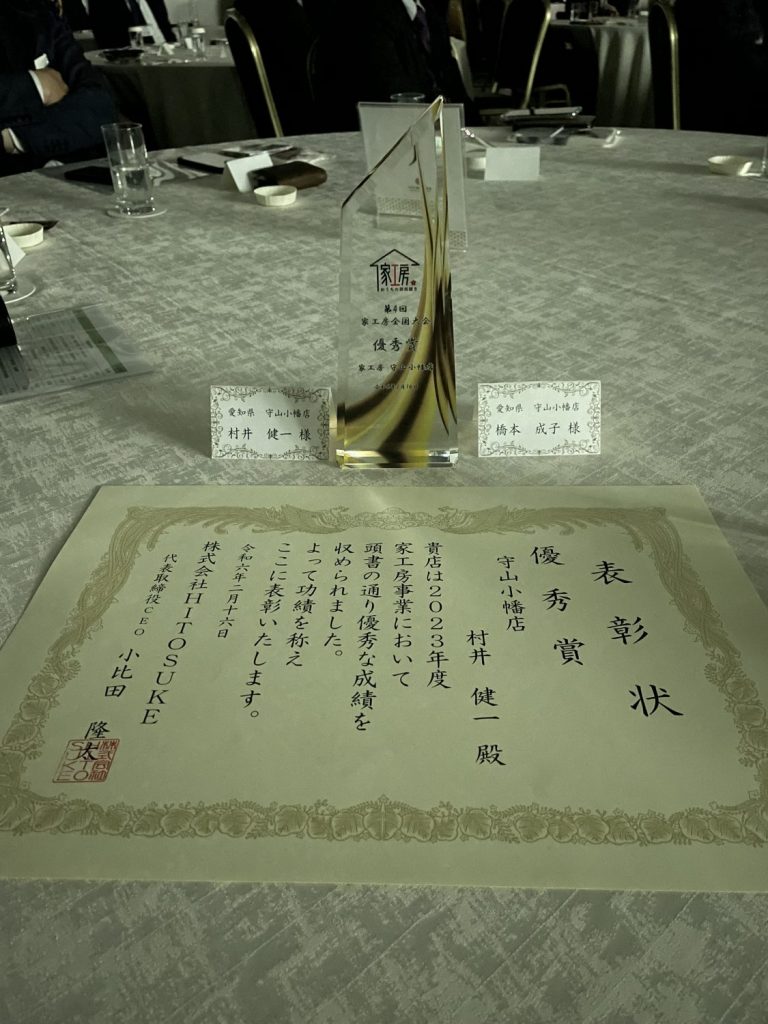 家工房
おうちの御用聞き
第4回
家工房全国大会
優秀賞
家工房 守山小幡店
愛知県 守山小幡店
村井 健一 様
愛知県 守山小幡店
橋本 成子 様
表彰状
優秀賞
守山小幡店
村井 健一 殿
貴店は2023年度
家工房事業において
頭書の通り優秀な成績を
収められました。
よって功績を称え
ここに表彰いたします。
令和六年二月十六日
株式会社HITOSUKE
代表取締役CEO 小比田 隆太